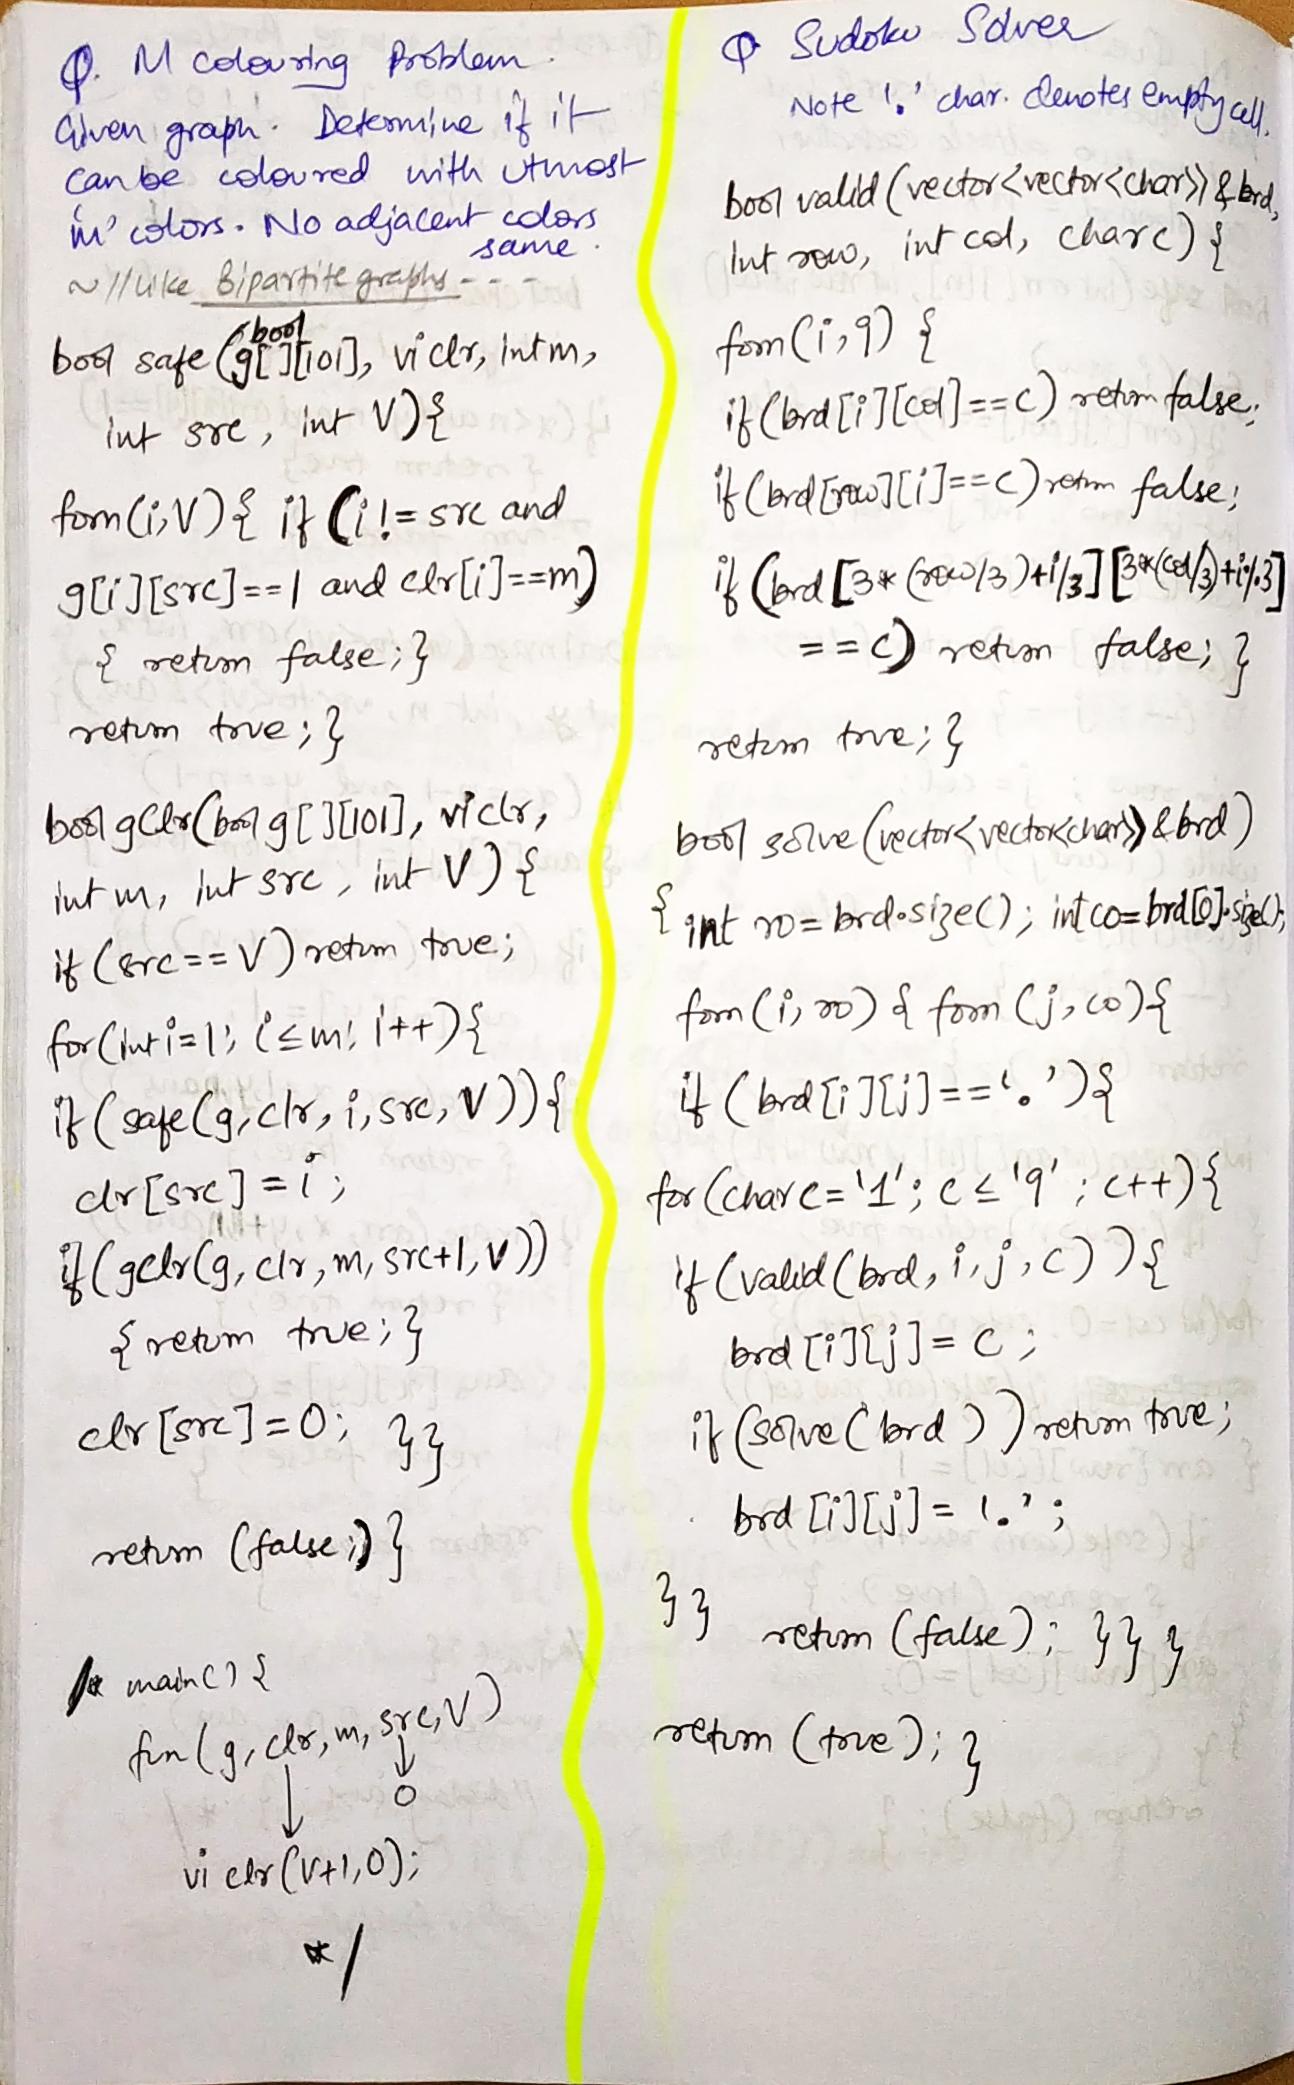 Q. M colouring Problem.
Given graph. Determine if it
can be coloured with utmost
'm' colors. No adjacent colors
same.
~ // Like Bipartite graphs - - -
bool safe (bool g[][101], vi clr, int m,
int src, int V) {
forn(i,V) { if (i != src and
g[i][src]==1 and clr[i]==m)
{ return false; }
return true; }
bool gclr(bool g[][101], vi clr,
int m, int src, int V) {
if (src == V) return true;
for(int i=1; i≤m; i++){
if (safe(g,clr,i,src,V)){
clr[src] = i;
if(gclr(g,clr,m,src+1,V))
{ return true; }
clr[src]=0; }}
return (false;) }
/* main() {
fun(g,clr,m,src,V)
0
vi clr(V+1,0);
*/
Q Sudoku Solver
Note '.' char. denotes empty cell.
bool valid (vector<vector<char>> & brd,
int row, int col, char c) {
forn(i,9) {
if (brd[i][col]==c) return false;
if (brd[row][i]==c) return false;
if (brd[3*(row/3)+i/3][3*(col/3)+i%3]
==c) return false; }
return true; }
bool solve (vector<vector<char>> & brd)
{ int ro = brd.size(); int co= brd[0].size();
forn(i,ro) { forn(j,co){
if (brd[i][j]=='.'){
for(char c='1'; c≤'9'; c++){
if (valid(brd,i,j,c)){
brd[i][j] = c;
if (solve(brd)) return true;
brd[i][j] = '.';
}} return (false); }}}
return (true); }